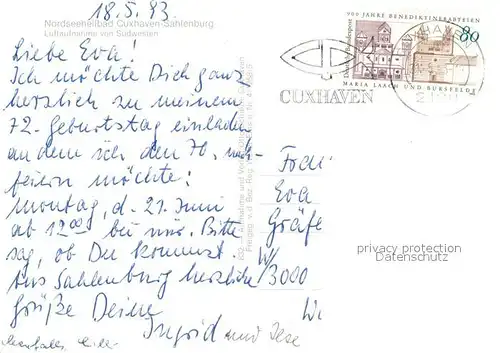 18.5.93.
Nordseeheilbad Cuxhaven-Sahlenburg
Luftaufnahme von Südwesten
Liebe Eva!
Ich möchte Dich ganz
herzlich zu meinem
72. Geburtstag einladen
an dem ich den 70. nach-
feiern möchte:
Montag, d. 21. Juni
ab 12 00 bei mir. Bitte
sag, ob Du kommst.
Aus Sahlenburg herzliche
Grüße Deine
Ingrid und
900 JAHRE BENEDIKTINERABTEIEN
Deutsche Bundespost
80
MARIA LAACH UND BURSFELDE
CUXHAVEN
CUXHAVEN
Frau
Eva
Gräfe
W/3000
privacy protection
Datenschutz